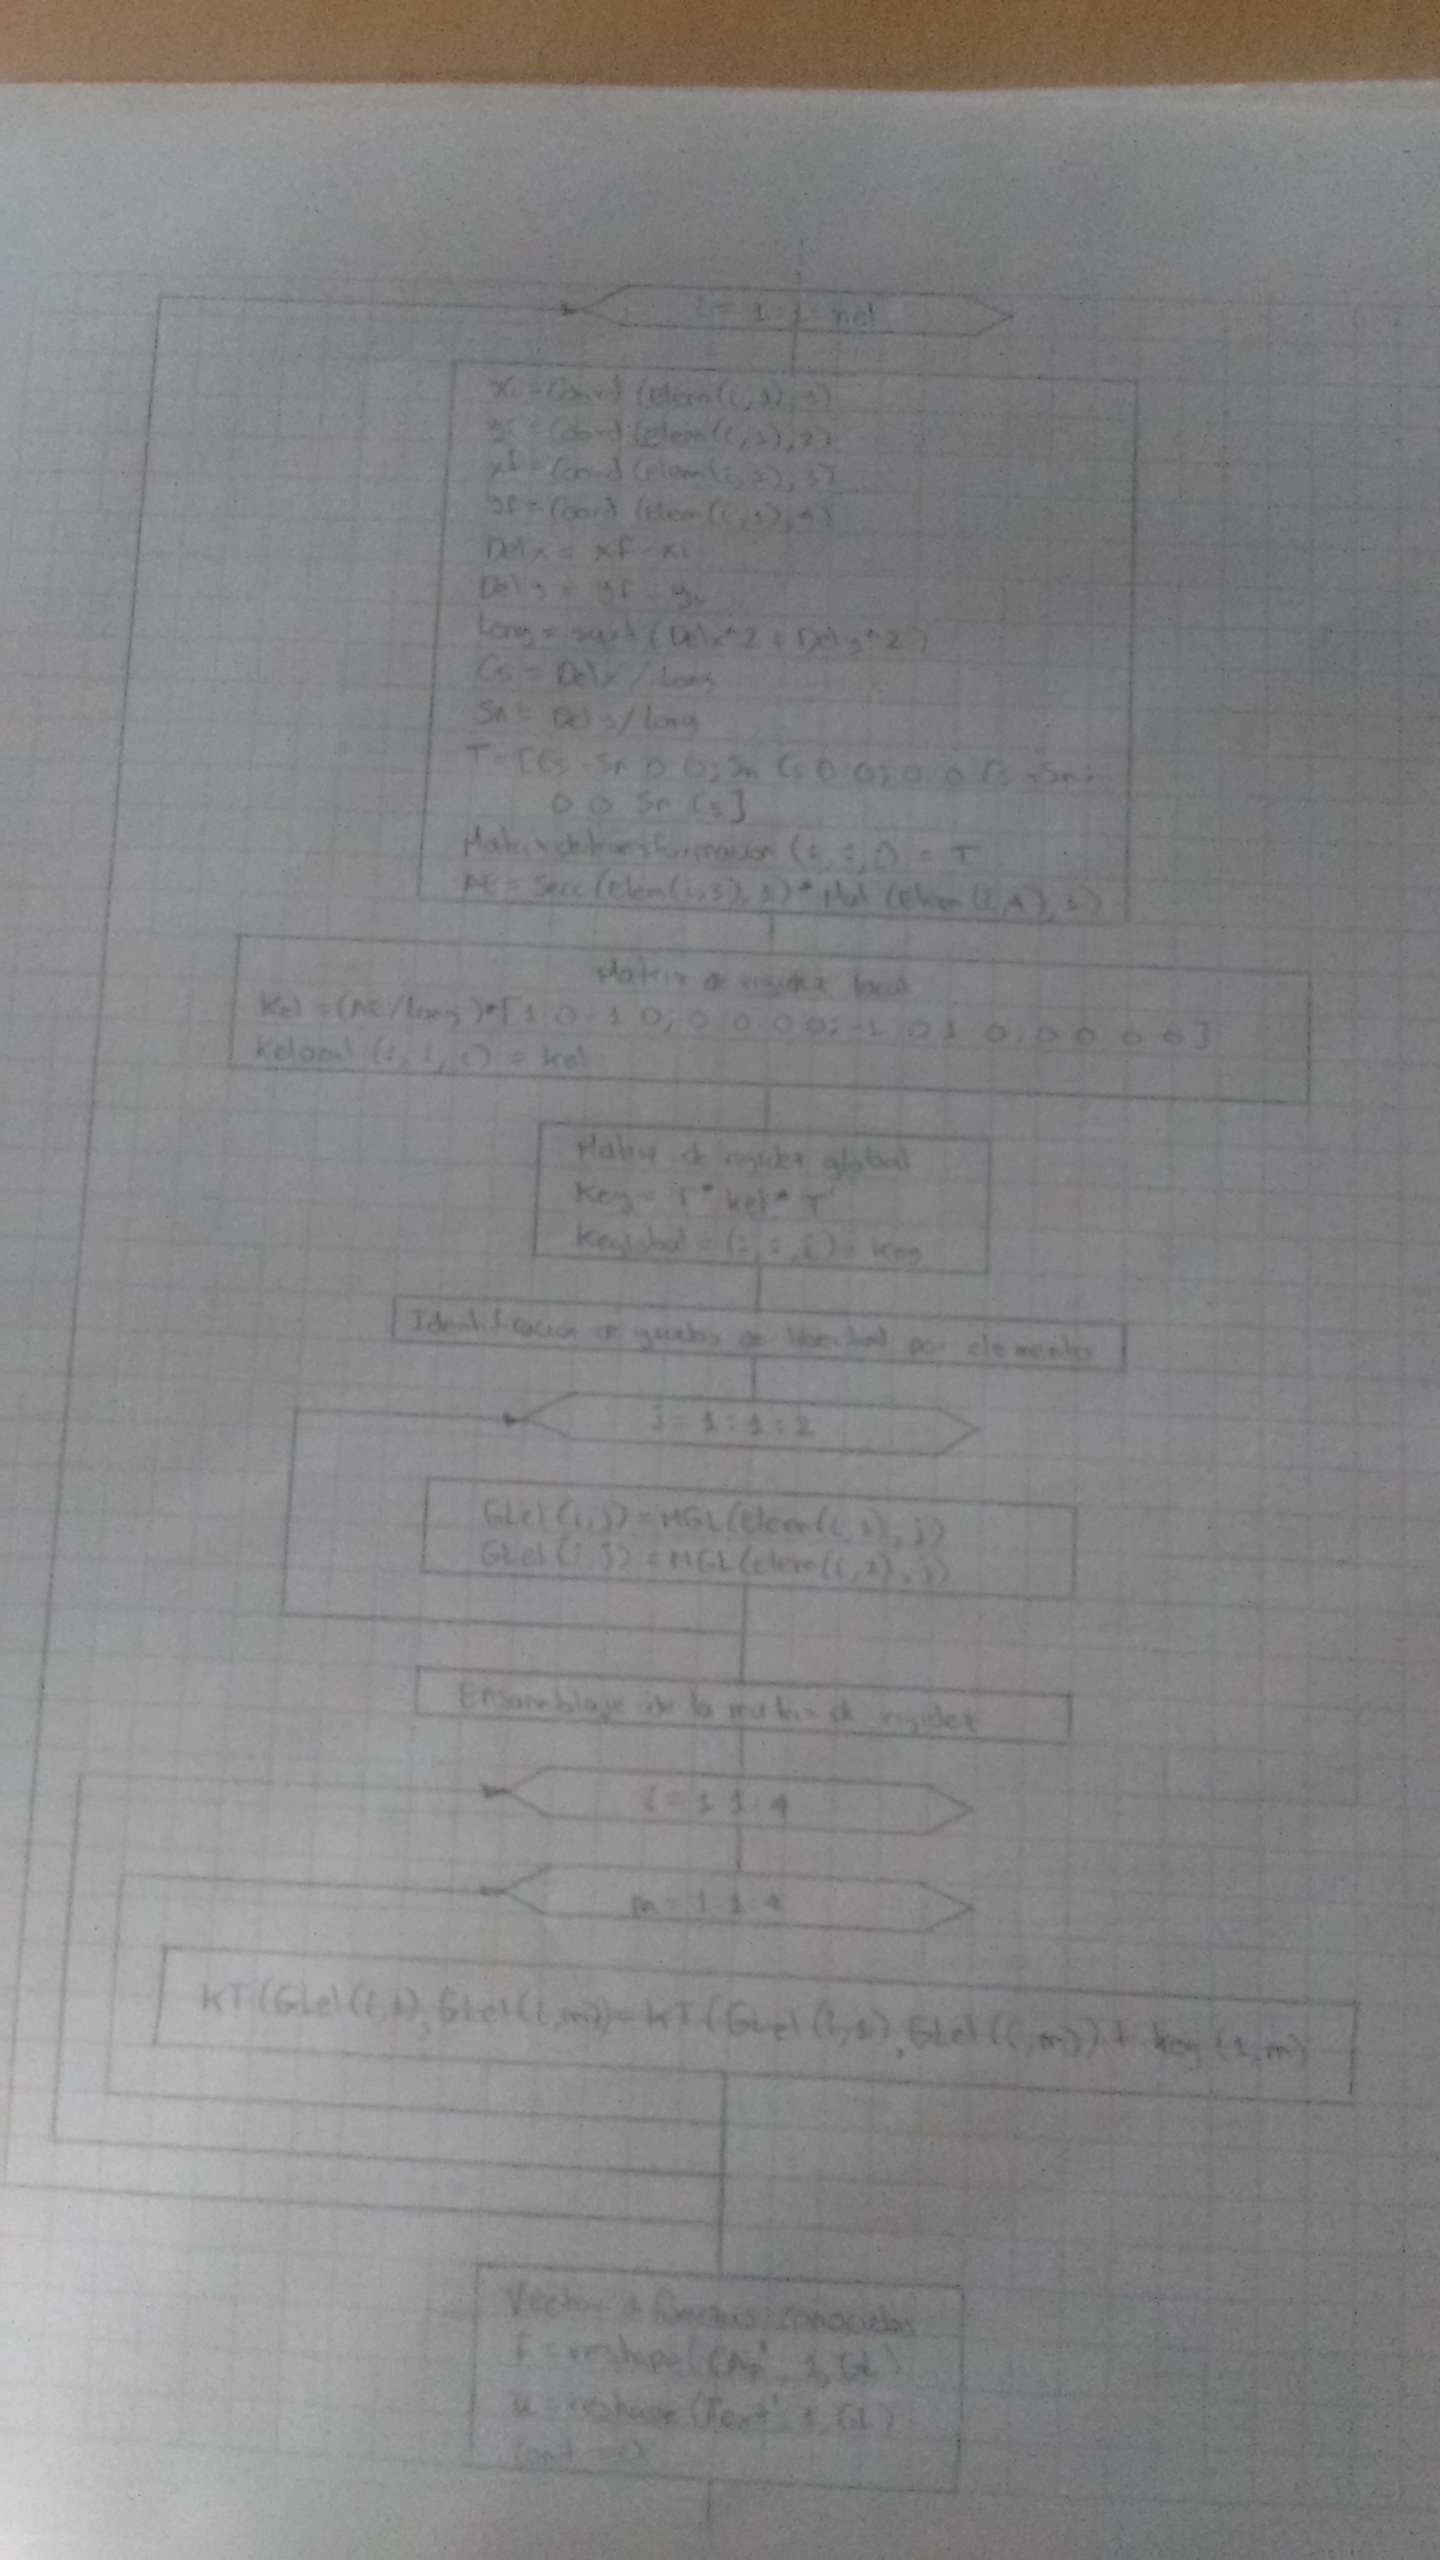 i = 1:1:nel
xi = Coord (elem(i,1),1)
yi = Coord (Elem(i,1),2)
xf = Coord (elem(i,2),3)
yf = Coord (elem(i,2),4)
Delx = xf - xi
Dely = yf - yi
Long = sqrt (Delx^2 + Dely^2)
Cs = Delx / Long
Sn = Dely / Long
T = [Cs -Sn 0 0; Sn Cs 0 0; 0 0 Cs -Sn;
0 0 Sn Cs]
Matriz de transformación (:, :, i) = T
AE = Secc (Elem(i,3),1) * Mat (Elem(i,4),1)
Matriz de rigidez local
Kel = (AE/Long)*[1 0 -1 0; 0 0 0 0; -1 0 1 0; 0 0 0 0]
Kelocal (:, :, i) = kel
Matriz de rigidez global
Keg = T * kel * T'
Keglobal = (:, :, i) = keg
Identificación de grados de libertad por elemento
j = 1:1:2
GLel (i,j) = MGL (elem(i,1), j)
GLel (i,j) = MGL (elem(i,2), j)
Ensamblaje de la matriz de rigidez
= 1:1:4
m = 1:1:4
KT (GLel (i, GLel (i,m)) = KT (GLel (i, GLel (i,m)) + keg (1,m)
Vector de fuerzas conocidas
f = reshape ( ', 1, GL)
u = reshape ( ', 1, GL)
Cont = 0